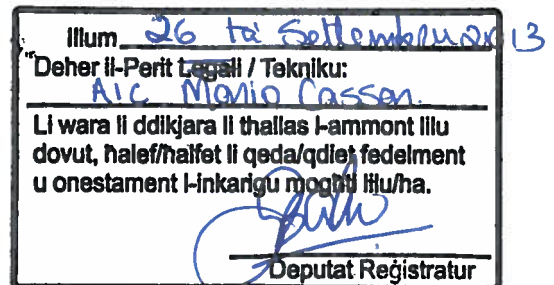 Illum 26 ta' Settembru 2013
Deher il-Perit Legali / Tekniku:
AIC Mario Cassar
Li wara li ddikjara li thallas l-ammont lilu
dovut, ħalef/ħalfet li qeda/qdiet fedelment
u onestament l-inkarigu mogħti lilu/ha.
Deputat Reġistratur